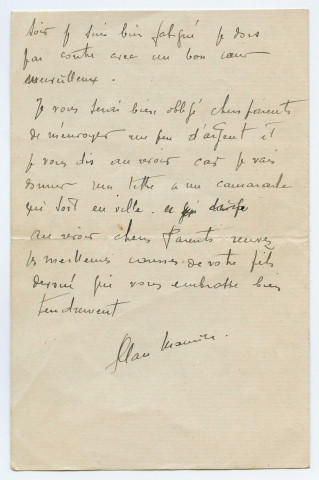 soir je suis bien fatigué je dors
par contre avec un bon cœur
merveilleux.
Je vous serai bien obligé chers parents
de m'envoyer un peu d'argent et
je vous dis au revoir car je vais
donner ma lettre a un camarade
qui sort en ville.
au revoir chers Parents recevez
les meilleurs de votre fils
qui vous embrasse bien
tendrement